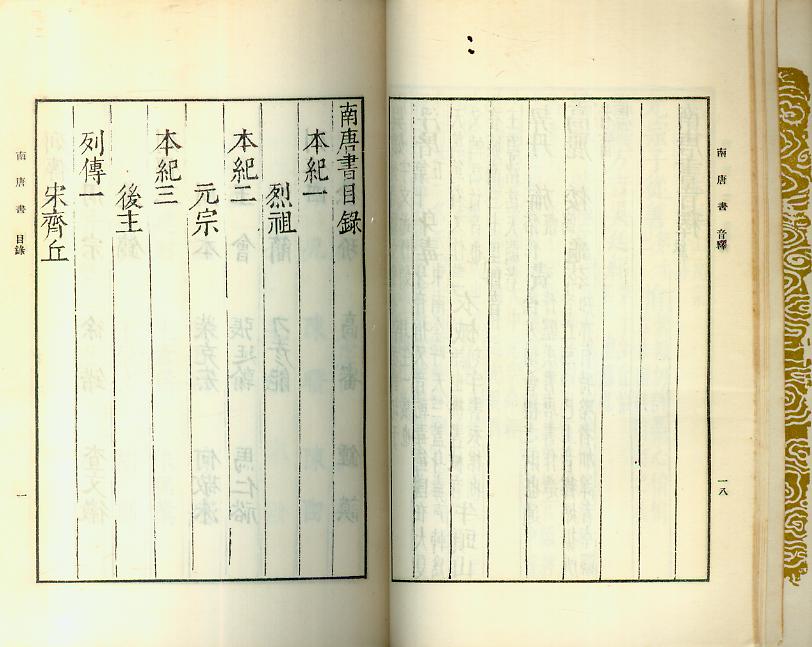 南唐書 音釋
一八
南唐書目錄
本紀一
烈祖
本紀二
元宗
本紀三
後主
列傳一
宋齊丘
南唐書 目錄
一